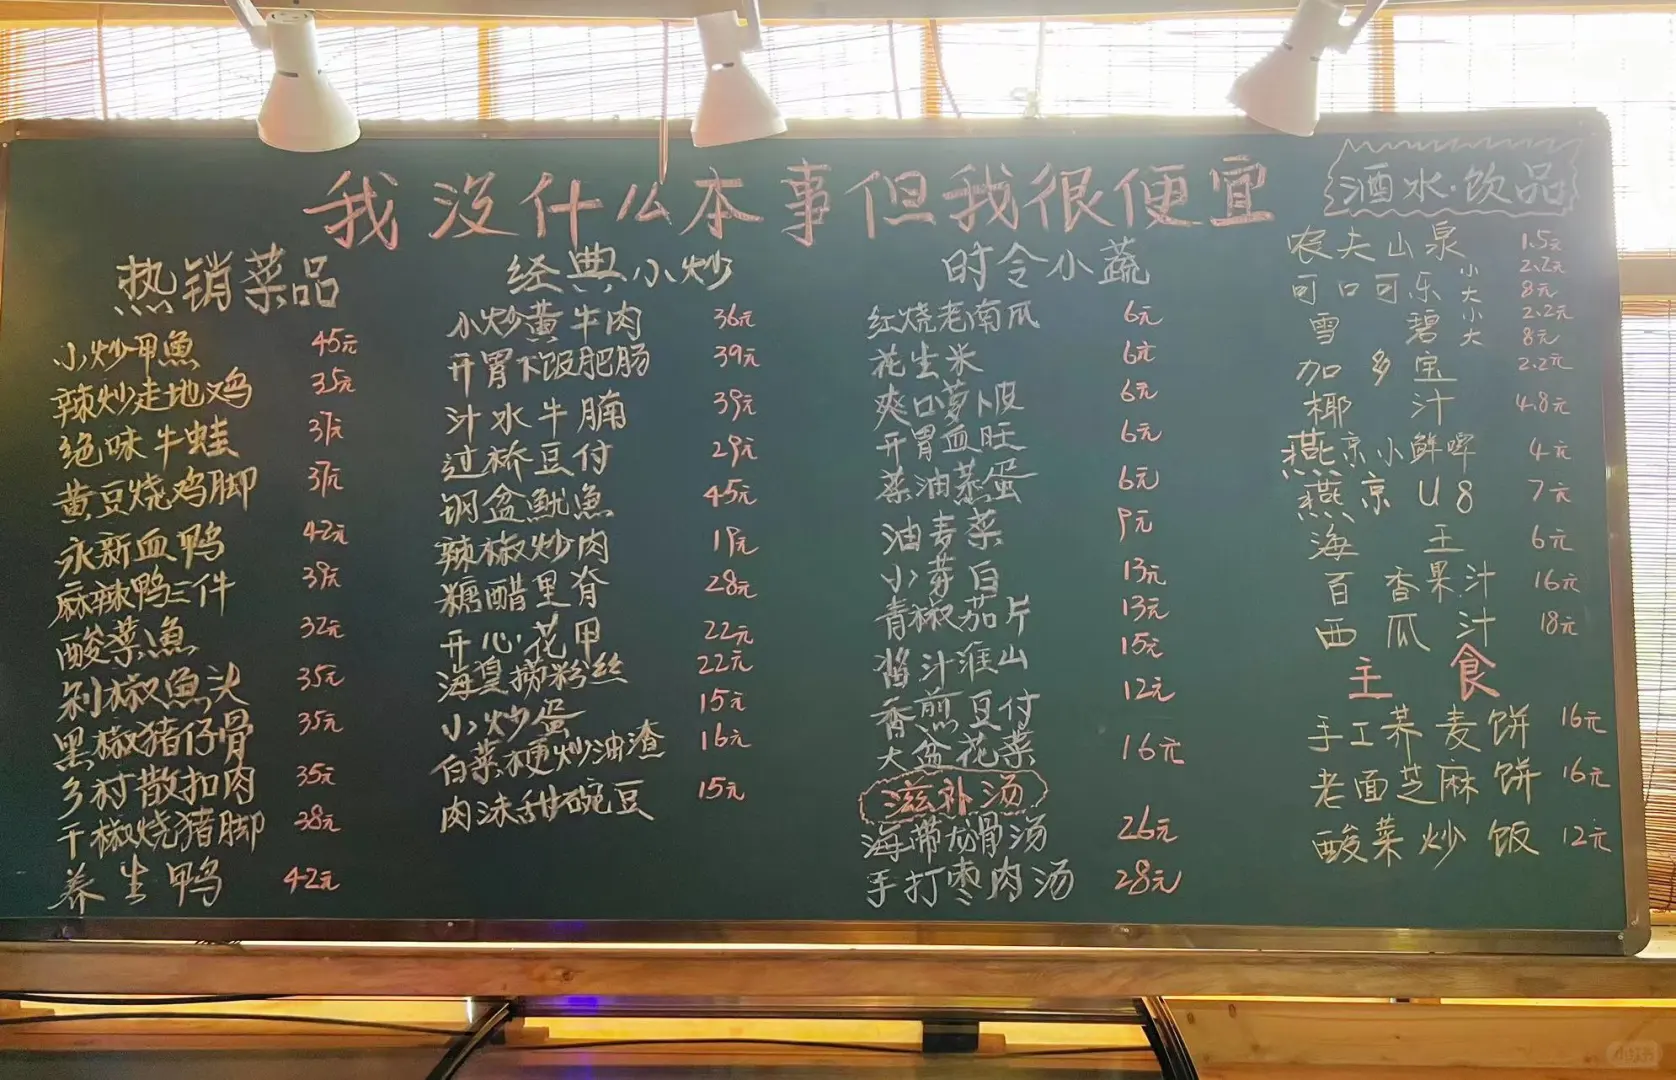 我没什么本事但我很便宜
热销菜品
小炒甲魚 45元
辣炒走地鸡 35元
绝味牛蛙 37元
黄豆烧鸡脚 37元
永新血鸭 42元
麻辣鸭三件 39元
酸菜魚 32元
剁椒魚头 35元
黑椒猪仔骨 35元
乡村散扣肉 35元
干椒烧猪脚 38元
养生鸭 42元
经典小炒
小炒黄牛肉 36元
开胃下饭肥肠 39元
汁水牛腩 39元
过桥豆付 29元
钢盆魷魚 45元
辣椒炒肉 19元
糖醋里脊 28元
开心花甲 22元
海皇捞粉丝 22元
小炒蛋 15元
白菜梗炒油渣 16元
肉沫甜碗豆 15元
时令小蔬
红烧老南瓜 6元
花生米 6元
爽口萝卜皮 6元
开胃血旺 6元
茶油蒸蛋 6元
油麦菜 9元
小芽白 13元
青椒茄片 13元
酱汁淮山 15元
香煎豆付 12元
大盆花菜 16元
滋补汤
海带龙骨汤 26元
手打枣肉汤 28元
酒水·饮品
农夫山泉 1.5元
可口可乐 小 2.2元
大 8元
雪碧 小 2.2元
大 8元
加多宝 2.2元
椰汁 4.8元
燕京小鲜啤 4元
燕京U8 7元
海王 6元
百香果汁 16元
西瓜汁 18元
主食
手工荞麦饼 16元
老面芝麻饼 16元
酸菜炒饭 12元